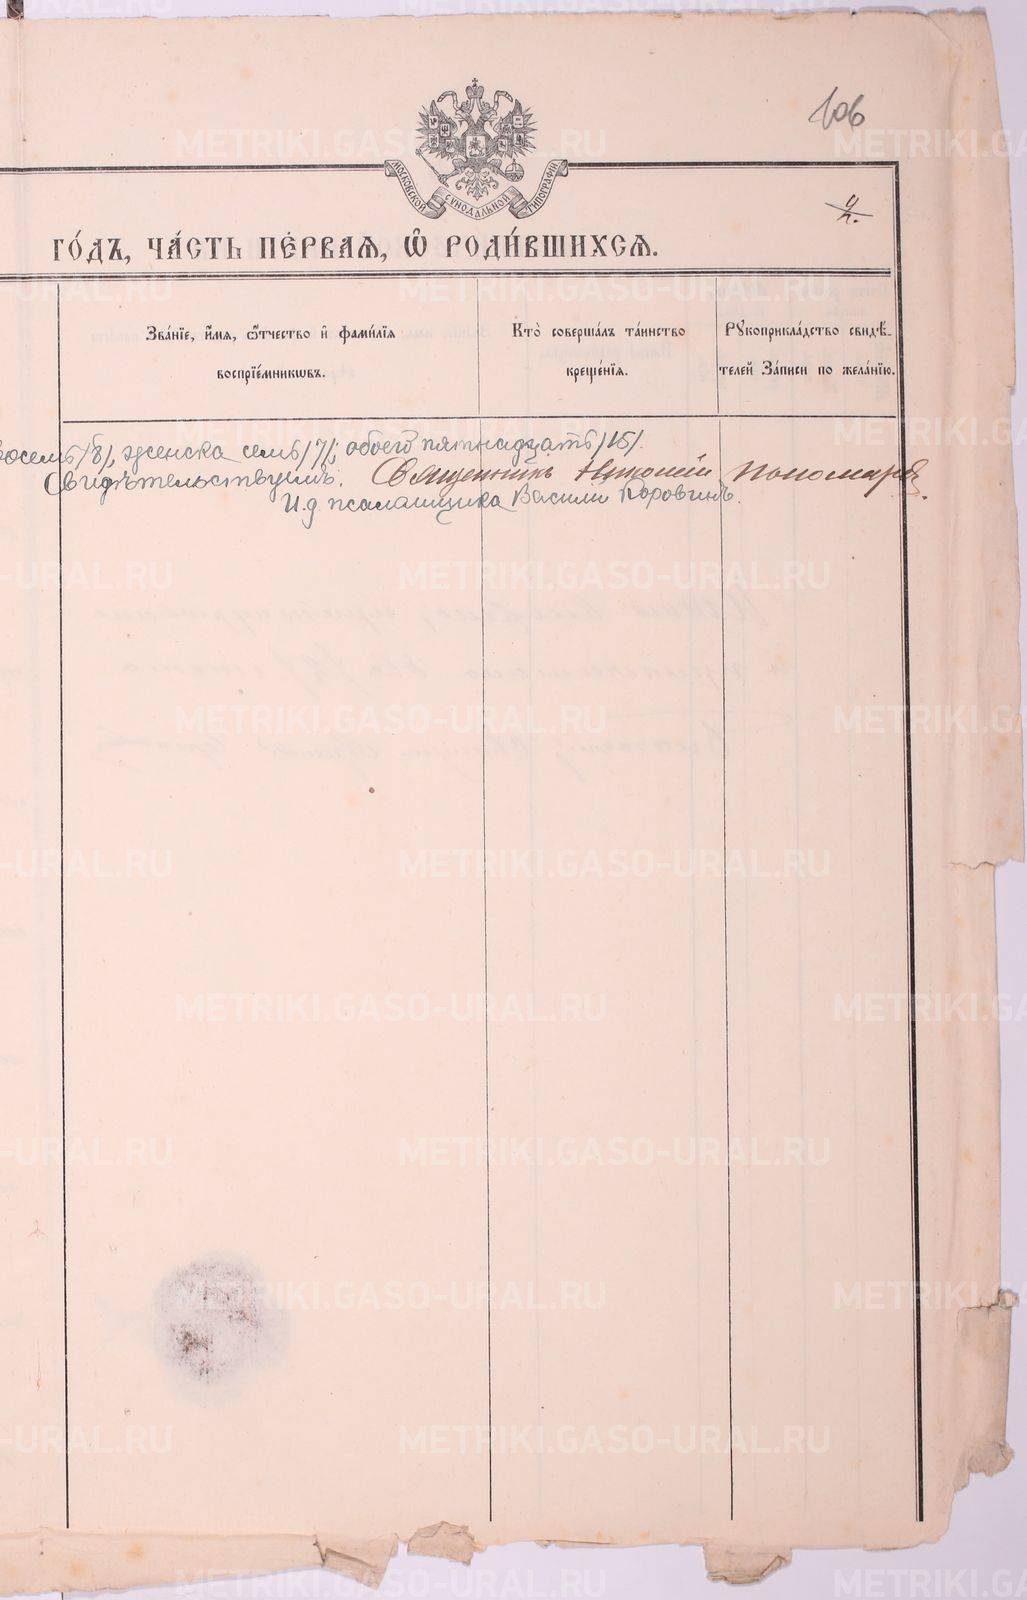 106
МОСКОВСКОЙ СѴНОДАЛЬНОЙ ТИПОГРАФІИ
ГО́ДЪ, ЧА́СТЬ ПЕ́РВАЯ, Ѽ РОДИ́ВШИХСЯ.
Зва́нїе, и҆́мя, ѻ҆́тчество и҆ фами́лїя воспрїе́мникѡвъ.
Кто̀ соверша́лъ та́инство креще́нїя.
Рꙋкоприкла́дство свидѣ́телей За́писи по жела́нїю.
восемь /8/, женска семь /7/; обоего пятнадцать /15/.
Свидѣтельствуемъ: Священникъ Николай Пономаревъ.
И.д. псаломщика Василій Коровинъ.
METRIKI.GASO-URAL.RU